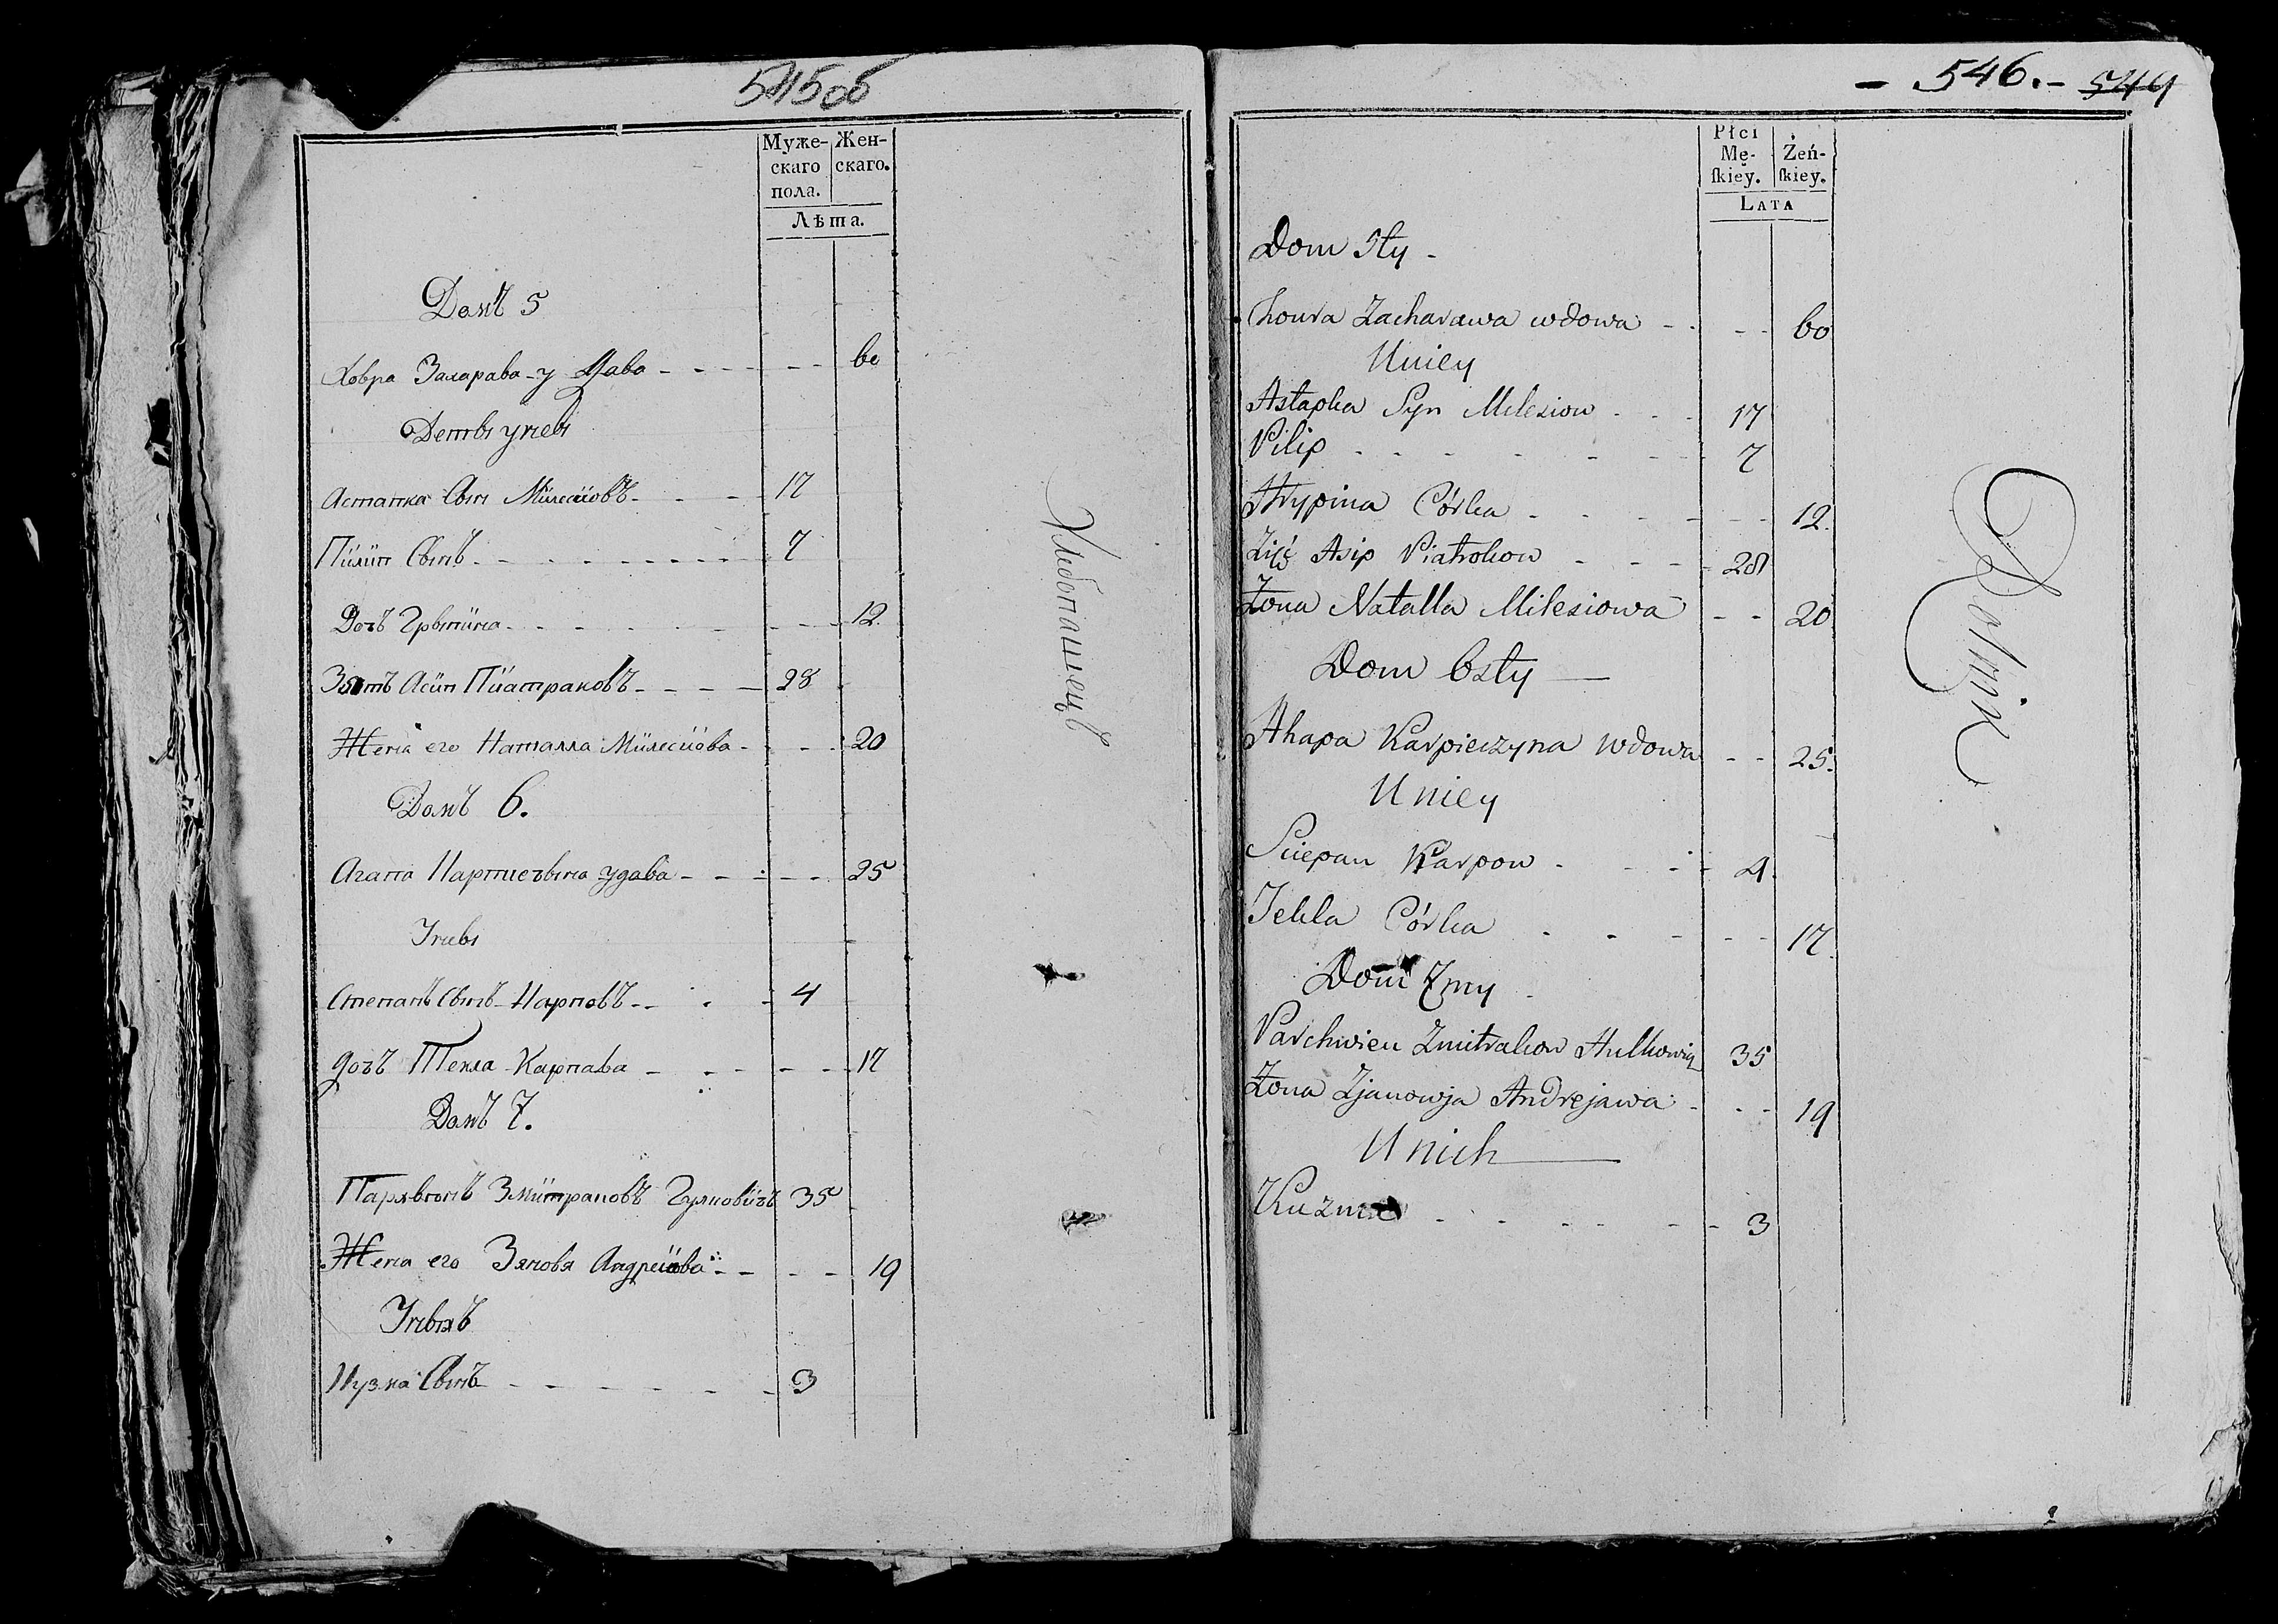 545об
Муже- Жен-
скаго скаго.
пола.
Лѣта.
Домъ 5
Ховра Захарава у дава - - - - - - 60
Дети унеи
Астапка Сын Милесiовъ - - - 17
Пилип Сынъ - - - - - - - 7
Дочъ Грыпина - - - - - - - 12
Зять Асип Пиатраковъ - - - - 28
Жена его Наталла Милесиова - - - 20
Домъ 6.
Агапа Карпиечына удава - - - - - 25
Унеи
Степанъ Сынъ Карповъ - - - 4
дочъ Текла Карпава - - - - - 17
Домъ 7.
Пархвенъ Змитраковъ Гулковичъ 35
Жена его Зяновя Андреiова - - - - 19
Унихъ
Кузма Сынъ - - - - - - 3
Хлибопашецъ
- 546. - 544
Płci
Mę- Żeń-
ſkiey. ſkiey.
LATA
Dom 5ty -
Chowra Zacharawa wdowa - - - - 60
Uniey
Astapka Syn Milesiow - - - 17
Pilip - - - - - - - 7
Hrypina Córka - - - - - - - 12.
Zięć Asip Piatrokow - - - - 28
Żona Natalla Milesiowa - - 20
Dom 6sty —
Ahapa Karpieczyna wdowa - - 25.
Uniey
Sciepan Karpow - - - - 4.
Tekla Córka - - - - - - 17.
Dom 7my -
Parchwien Zmitrakow Hulkowicz 35
Żona Zjanowja Andrejawa - - - 19
Unich
Kuzma - - - - - - 3
Rolnik